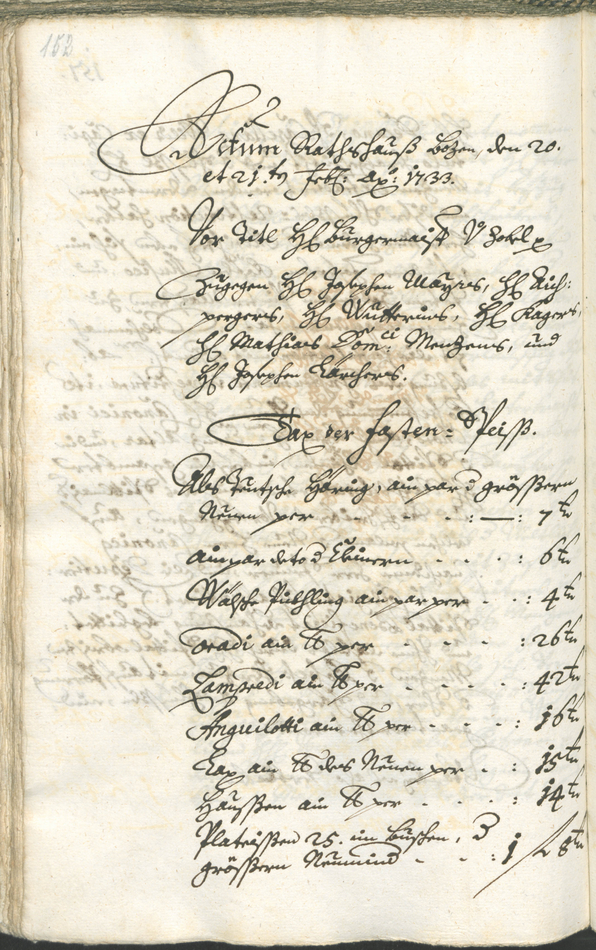 152
Actum Rathshauß Bozen, den 20.
et 21.ten Febr: Ao: 1733.
Vor Titl H: Burgermaist: v: Zobel p
Zugegen H: Josephen Mayrs, H: Aich:
pergers, H: Wutterins, H: Kagers,
H: Mathias Dom:ci Menzens, und
H: Josephen Kärchers.
Tax der Fasten-Speiß.
Als Teutsche Häring, ain par d größern
Neuen per - - - : — : 7 kr
ain par deto d Clainern - - - : 6 kr
Wälsche Püthling ain par per - - : 4 kr
Oradi ain ℔ per - - - - : 26 kr
Lampredi ain ℔ per - - - : 42 kr
Anguilotti ain ℔ per - - - : 16 kr
Lax ain ℔ des Neuen per - - : 15 kr
Haussen ain ℔ per - - - : 14 kr
Plateissen 25. im Buschen, d
größern - - - : 1 f 8 kr